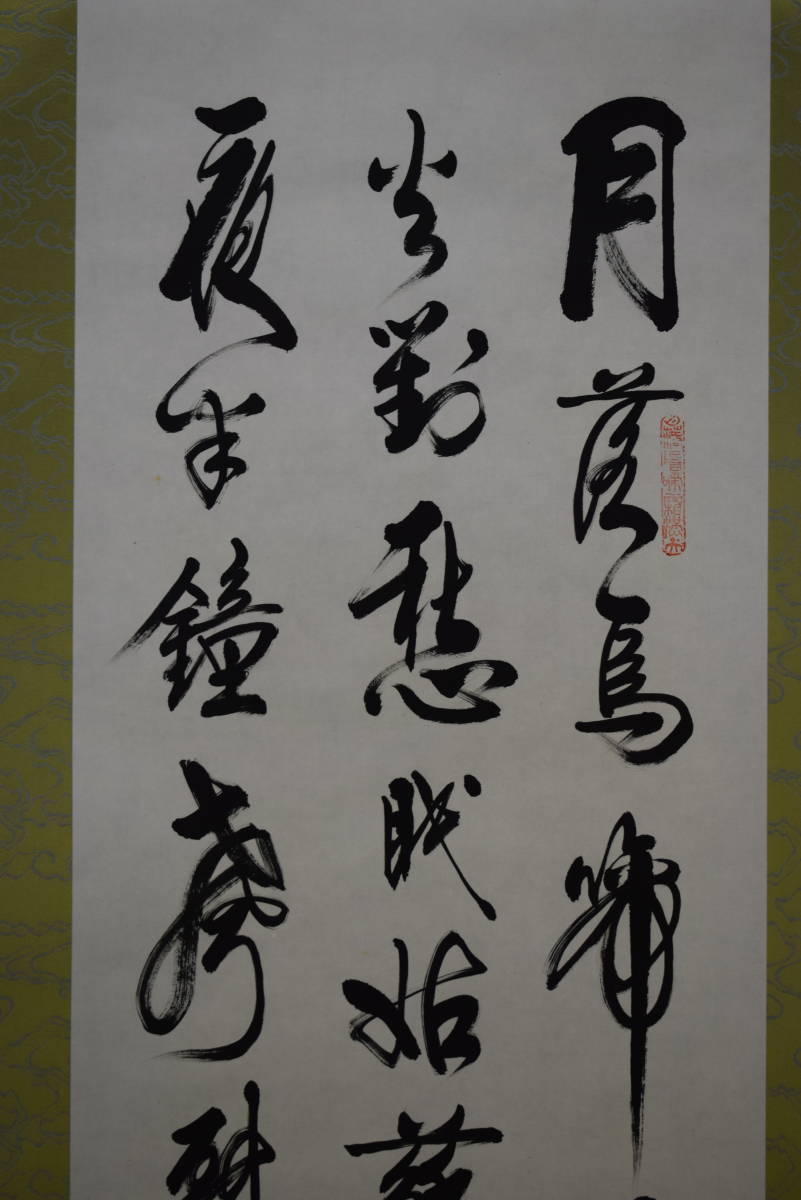 月落烏啼
火對愁眠姑
夜半鐘聲